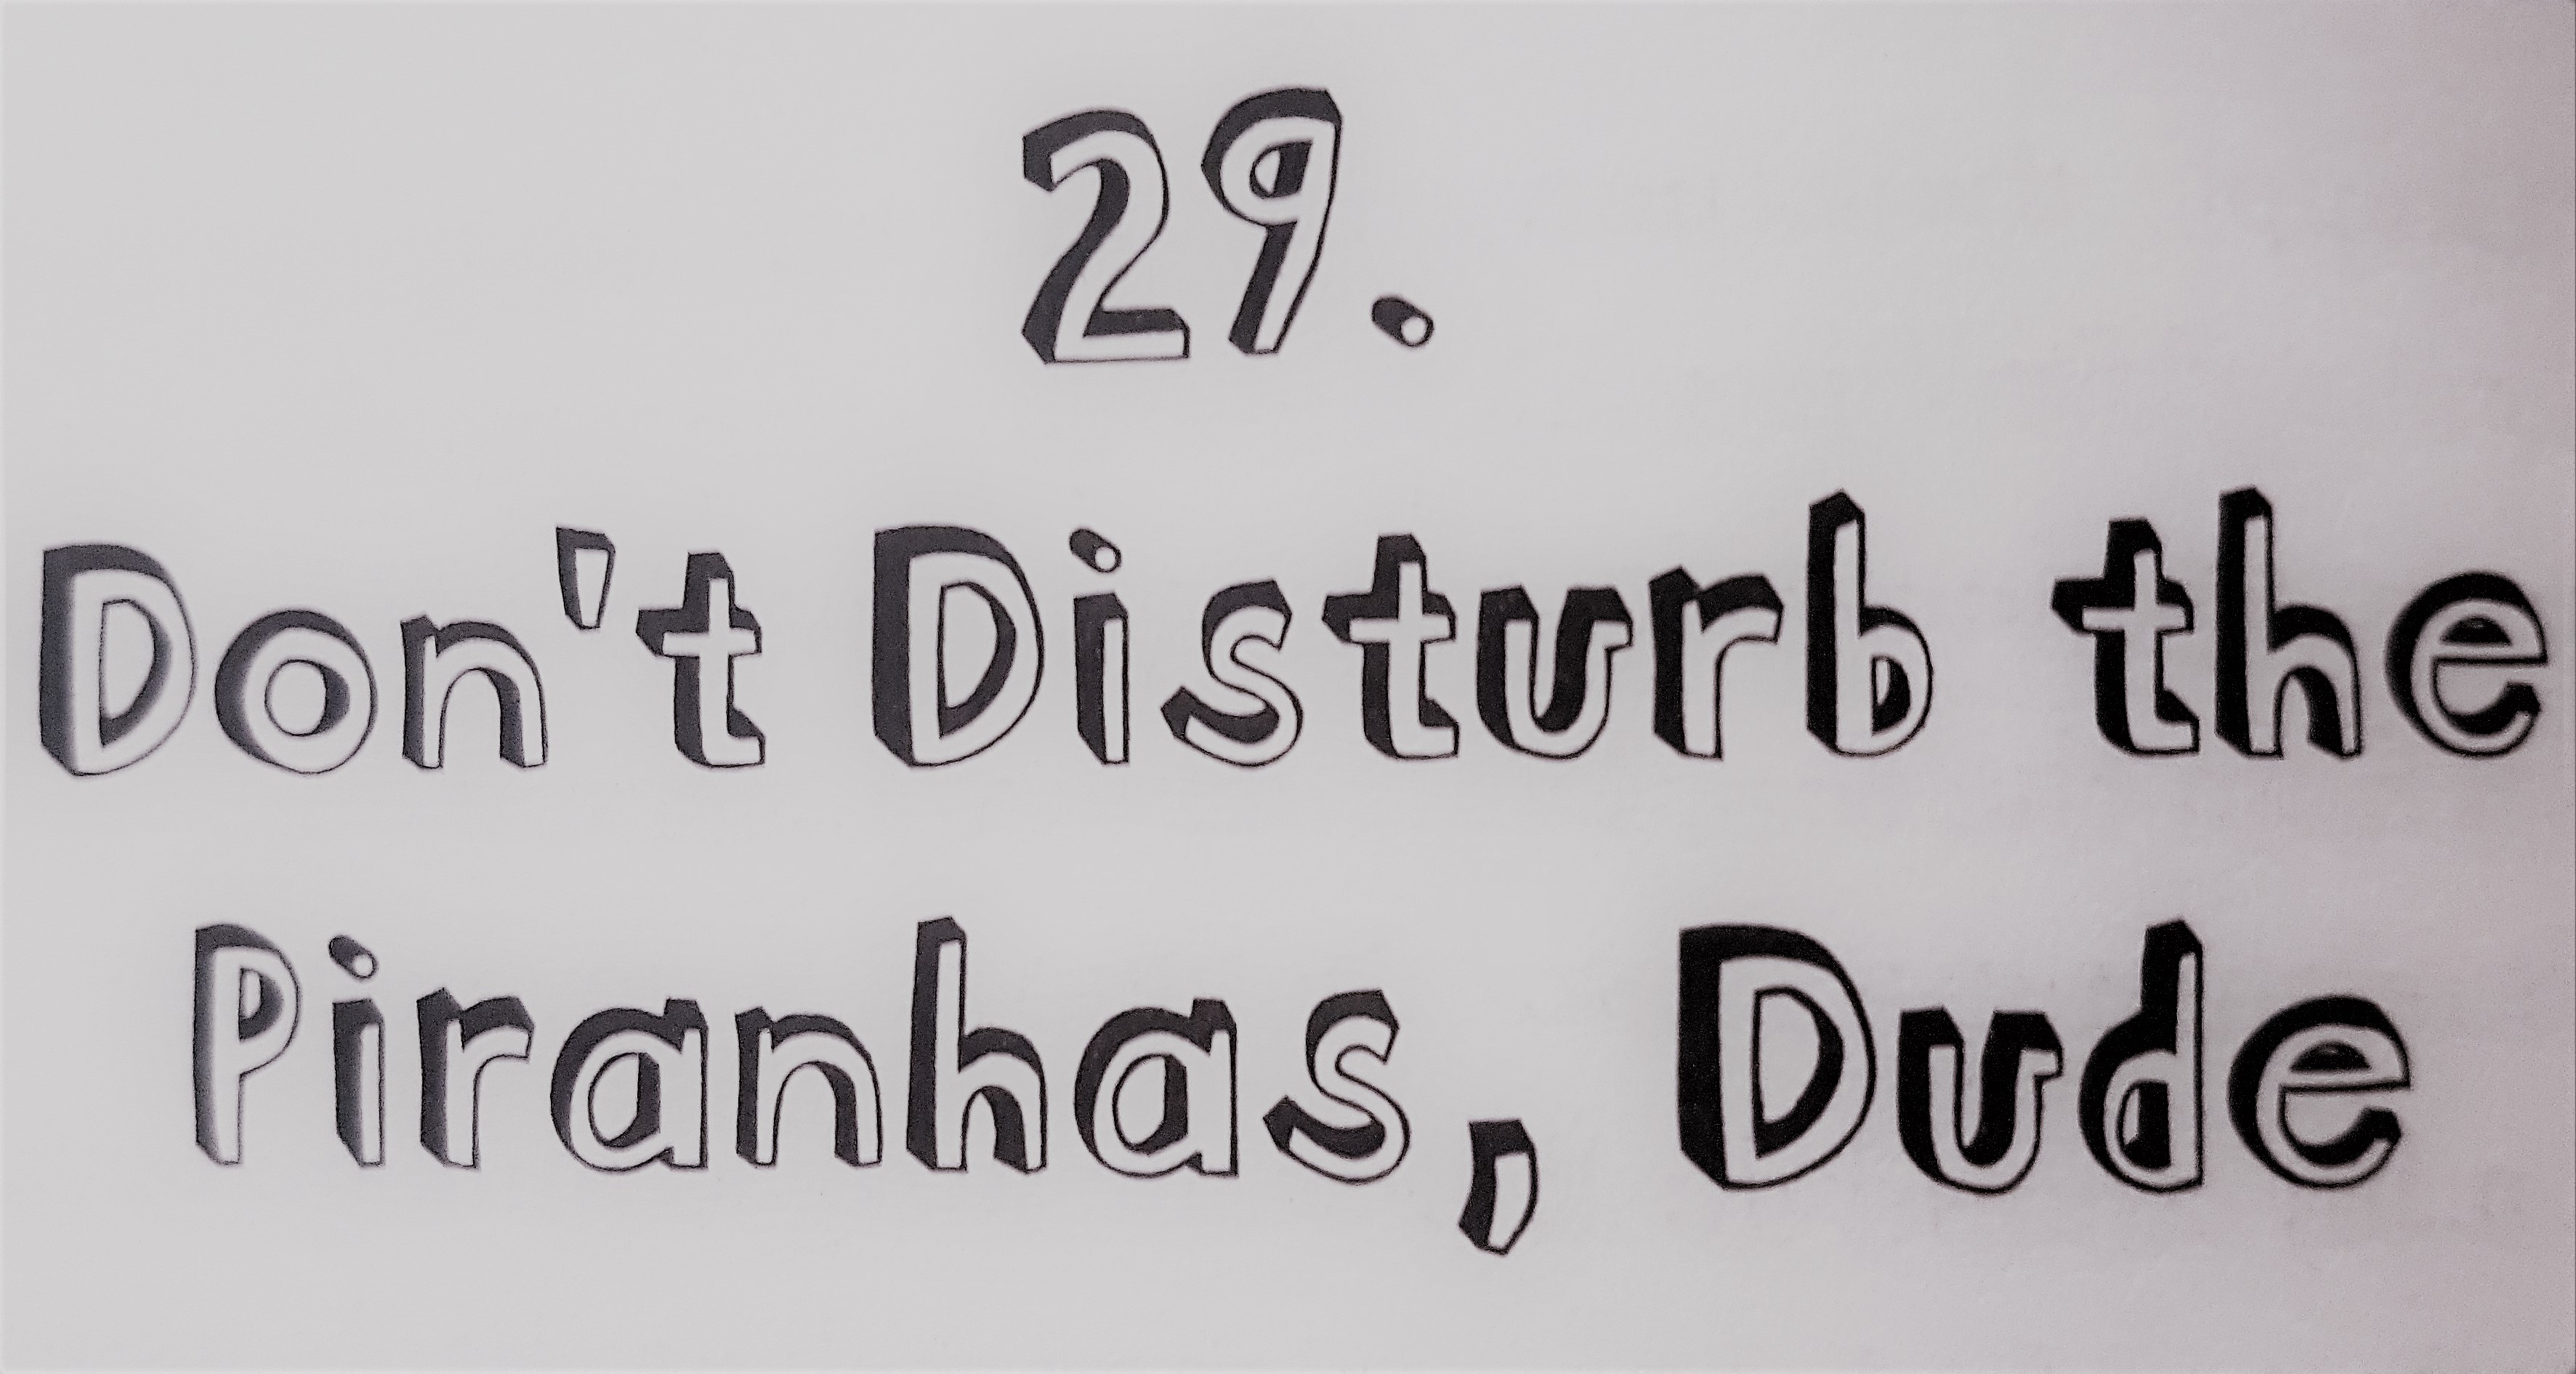 29.
Don't Disturb the
Piranhas, Dude